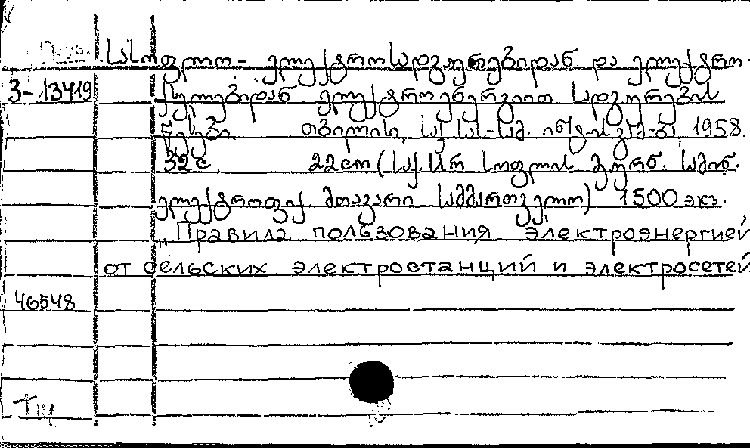 სასოფლო- ელექტროსადგურებიდან და ელექტრო-
3-13419 ქსელებიდან ელექტროენერგიით სადგურების
წესები. თბილისი, საქ.სას.-სამ. 1958.
32 с. 22 cm (საქ.სსრ სოფლის მეურნ. სამინ.
ელექტროფიკ. მთავარი სამმართველო) 1500 экз.
"Правила пользования электроэнергией
от сельских электростанций и электросетей
46548
T14